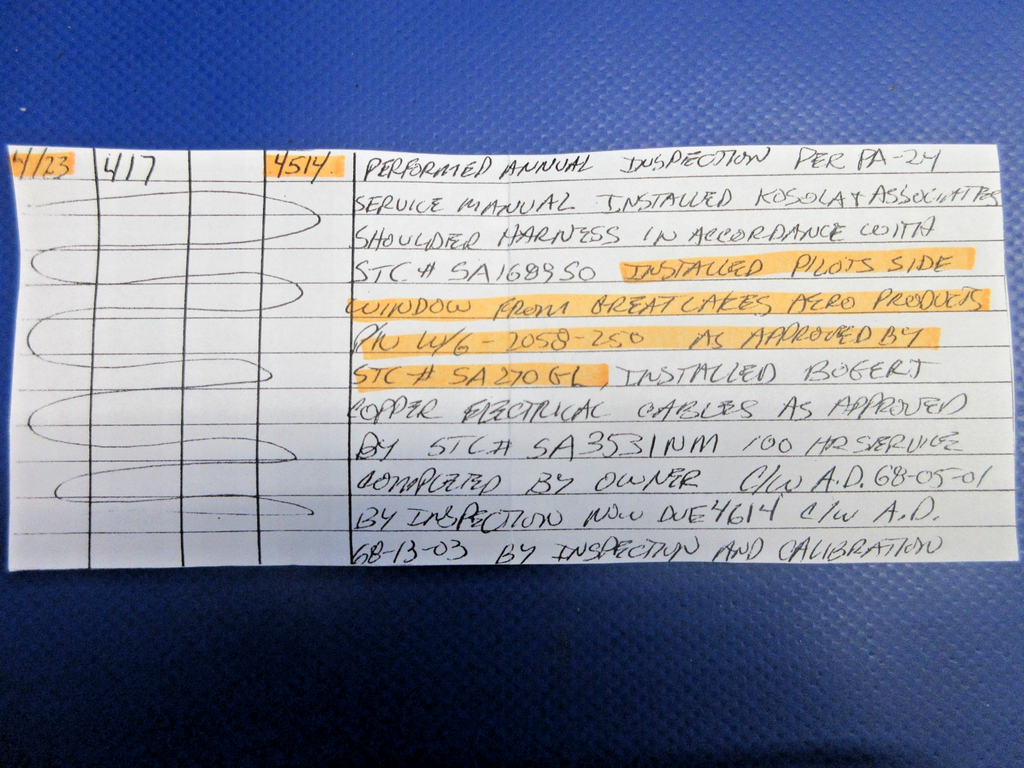 4/23 417 4514 PERFORMED ANNUAL INSPECTION PER PA-24
SERVICE MANUAL INSTALLED KOSOLA & ASSOCIATES
SHOULDER HARNESS IN ACCORDANCE WITH
STC # SA1689SO INSTALLED PILOTS SIDE
WINDOW FROM GREAT LAKES AERO PRODUCTS
P/N W/G-2058-250 AS APPROVED BY
STC # SA270GL, INSTALLED BOGERT
COPPER ELECTRICAL CABLES AS APPROVED
BY STC# SA3531NM 100 HR SERVICE
COMPLETED BY OWNER C/W A.D. 68-05-01
BY INSPECTION NOW DUE 4614 C/W A.D.
68-13-03 BY INSPECTION AND CALIBRATION